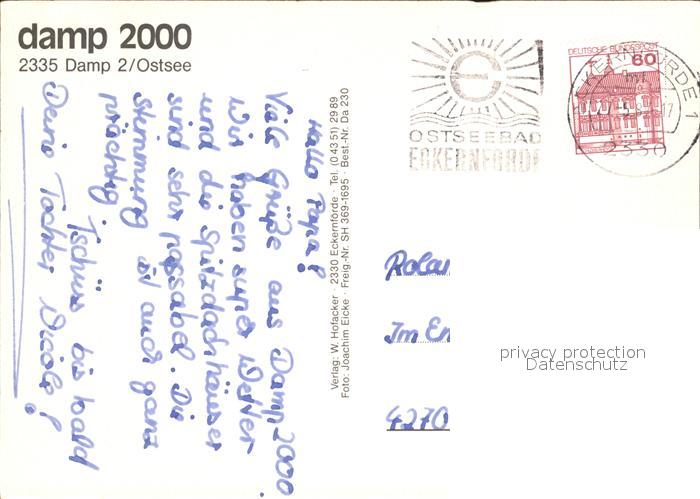 damp 2000
2335 Damp 2/Ostsee
Hallo Papa!
Viele Grüße aus Damp 2000
Wir haben super Wetter
und die Spitzdachhäuser
sind sehr passabel. Die
Stimmung ist auch ganz
prächtig.
Tschüss bis bald
Deine Tochter Nicole!
Verlag: W. Hofacker · 2330 Eckernförde · Tel. (0 43 51) 29 89
Foto: Joachim Eicke · Freig.-Nr. SH 369-1695 · Best.-Nr. Da 230
OSTSEEBAD
ECKERNFÖRDE
DEUTSCHE BUNDESPOST
60
ECKERNFÖRDE 1
2330
Rolan
Im Er
4270
privacy protection
Datenschutz